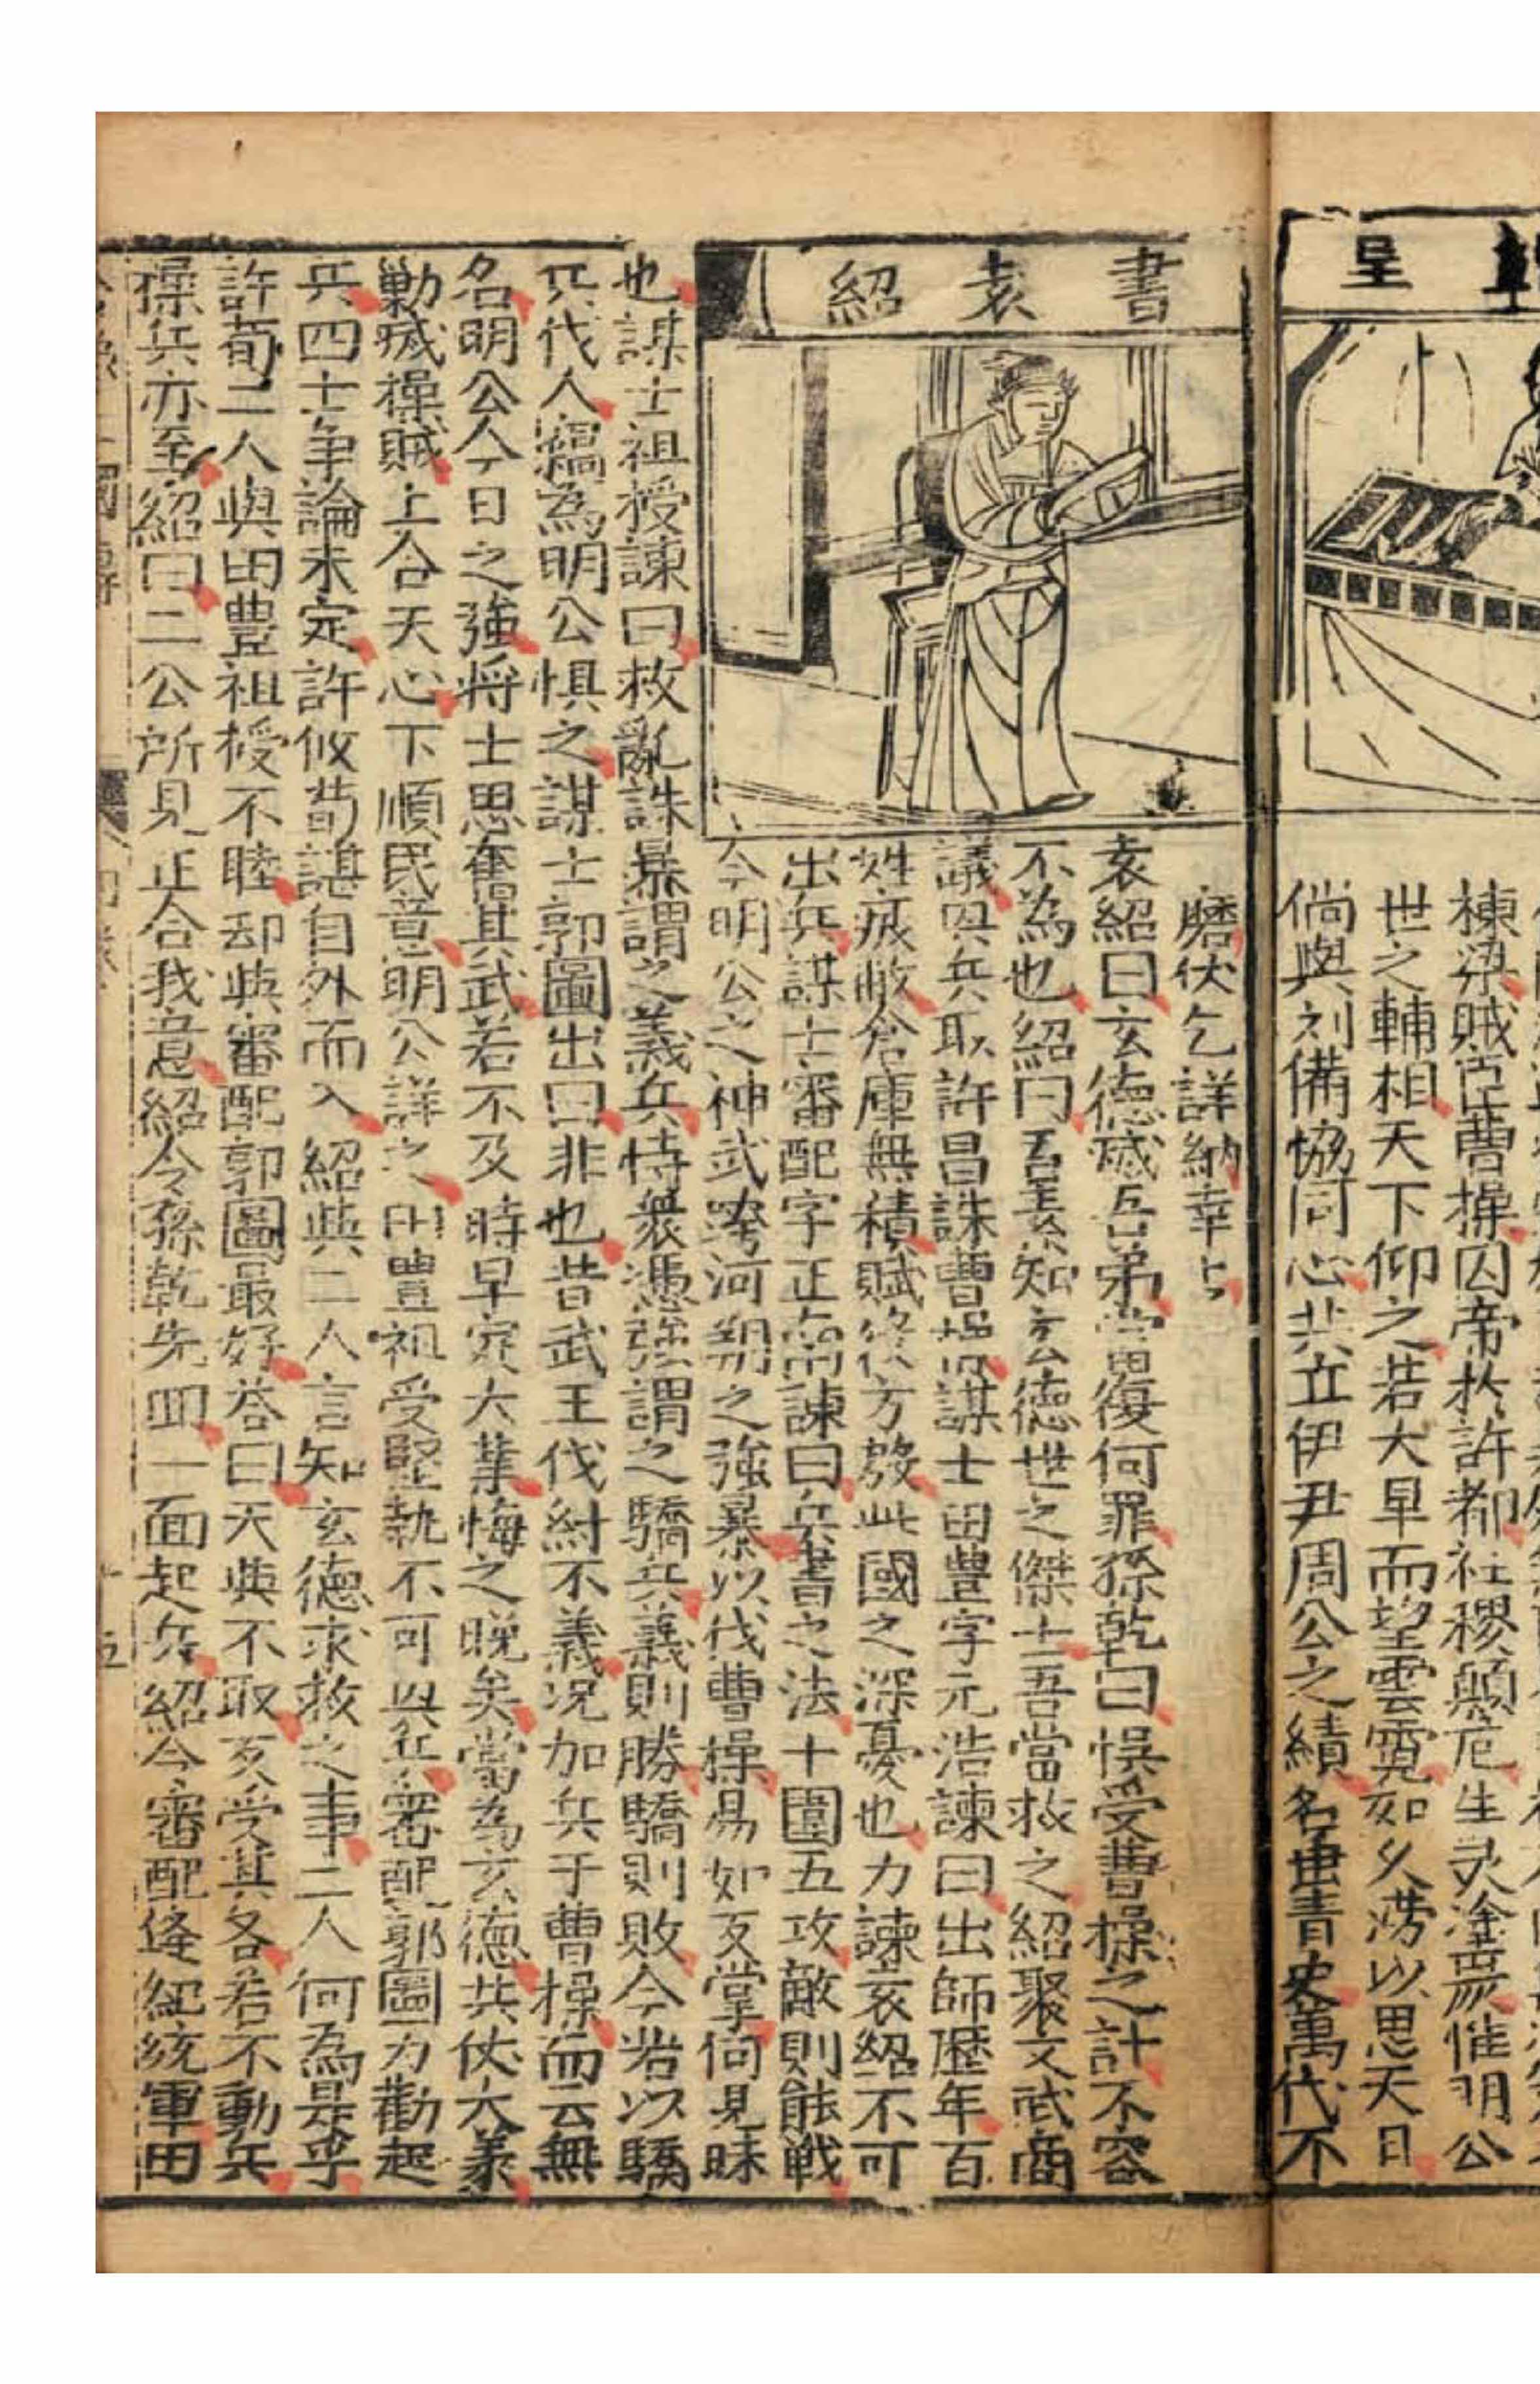 呈
棟梁賊臣曹操囚帝於許都社稷顛危生灵塗炭惟明公
世之輔相天下仰之若大旱而望雲霓如久澇以思天日
倘與刘備協同心共立伊尹周公之績名垂青史萬代不
書袁紹
磨伏乞詳納幸㇀
袁紹曰玄德滅吾弟當面復何罪孫乾曰悞受曹操之計不容
不為也紹曰吾素知玄德世之傑士吾當救之紹聚文武商
議思兵取許昌誅曹操謀士田豊字元浩諫曰出師歷年百
姓疲敝倉庫無積賦役方殷此國之深憂也力諫袁紹不可
出兵謀士審配字正南諫曰兵書之法十圍五攻敵則能戦
今明公之神武跨河朔之強暴以伐曹操易如反掌何見昧
也謀士祖授諫曰救亂誅暴謂之義兵恃衆憑強謂之驕兵義則勝驕則敗今若以驕
兵代人窃為明公惧之謀士郭圖出曰非也昔武王伐紂不義况加兵于曹操而云無
名明公今日之強将士思奮其武若不及時早定大業悔之晚矣當為玄德共仗大義
勦滅操賊上合天心下順民意明公詳之田豊祖受堅執不可興兵審配郭圖力勸起
兵四士争論未定許攸荀諶自外而入紹與二人言知玄德求救之事二人何為是乎
許荀二人與田豊祖授不睦却與審配郭圖最好答曰天與不取反受其咎若不動兵
操兵亦至紹曰二公所見正合我意紹令孫乾先囬一面起兵紹令審配逄紀統軍田